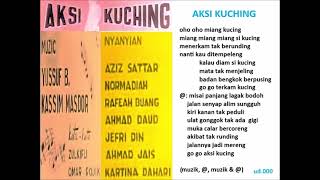 AKSI KUCHING
MUZIC
YUSSIF B.
KASSIM MASDOR
NYANYIAN
AZIZ SATTAR
NORMADIAH
RAFEAH BUANG
AHMAD DAUD
JEFRI DIN
AHMAD JAIS
KARTINA DAHARI
ZULKIFLI
OMAR ROJIK
AKSI KUCHING
oho oho miang kucing
miang miang miang si kucing
menerkam tak berunding
nanti kau ditempeleng
kalau diam si kucing
mata tak menjeling
badan bengkok berpusing
go go terkam kucing
@: misai panjang lagak bodoh
jalan senyap alim sungguh
kiri kanan tak peduli
ulat gonggok tak ada gigi
muka calar bercoreng
akibat tak runding
jalannya jadi mereng
go go aksi kucing
(muzik, @, muzik & @)